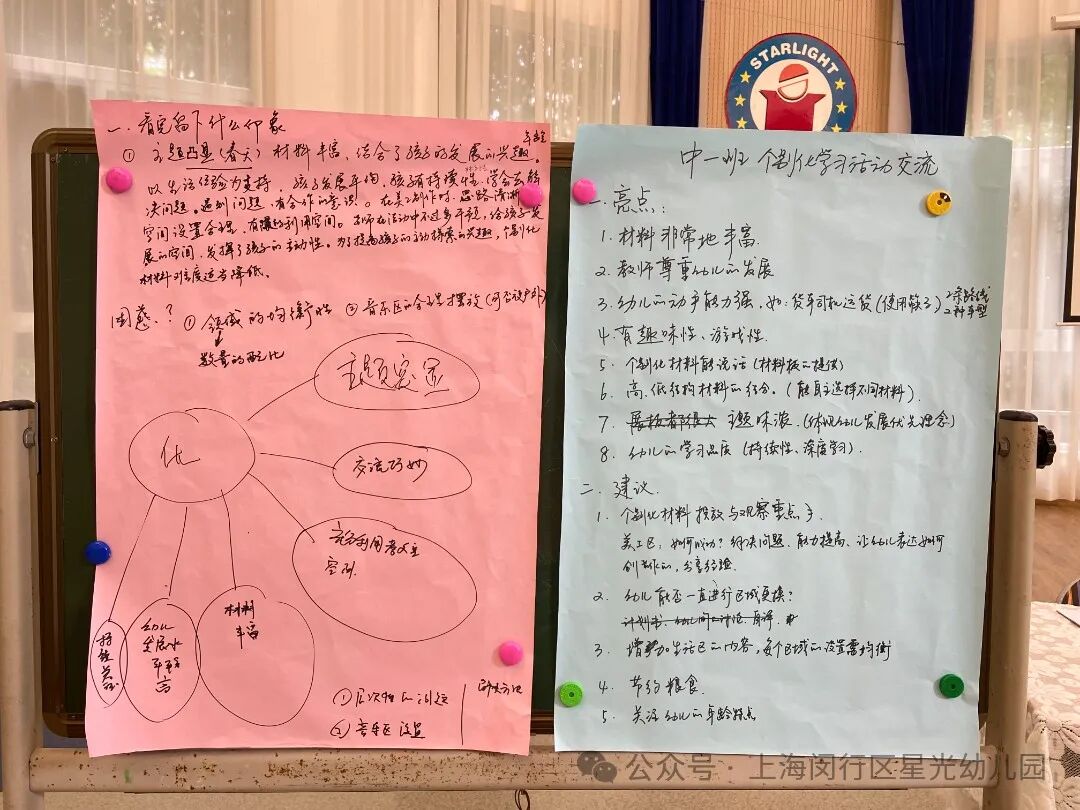 STARLIGHT
一. 看完留下什么印象
① 主题凸显（春天）材料丰富、结合了孩子的发展的兴趣。
以生活经验为支持，孩子发展平均，孩子有持续性，学会去解
决问题。遇到问题，有合作的意识。在美工制作时，思路清晰
空间设置合理，有操近利用空间。老师在活动中不过多干预，给孩子发
展的空间，发挥了孩子的主动性。为了提高孩子的主动探索的兴趣，个别化
材料难度适当降低。
困惑？① 领域的均衡性 ② 音乐区的合理摆放（可否设户外）
数量的配比
优
主题突显
交流巧妙
充分利用
空间
材料
丰富
幼儿
发展水
平
高
① 层次性的问题
② 音乐区设置
中一班 个别化学习活动交流
一. 亮点：
1. 材料非常地丰富.
2. 教师尊重幼儿的发展
3. 幼儿的动手能力强，如：货车司机运货（使用筷子）
4. 有趣味性、游戏性.
5. 个别化材料能说话（材料板的提供）
6. 高、低结构材料的结合。（能自主选择不同材料）.
7. 趣味浓.（体现幼儿发展优先理念）
8. 幼儿的学习品质（持续性、深度学习）.
二. 建议.
1. 个别化材料投放与观察重点
美工区：如何成功？解决问题、能力提高、让幼儿表达如何
创作的，分享经验.
2. 幼儿能否一直进行区域更换？
3. 增加生活区的内容，每个区域的设置需均衡
4. 节约粮食.
5. 关注幼儿的年龄特点
公众号 · 上海闵行区星光幼儿园